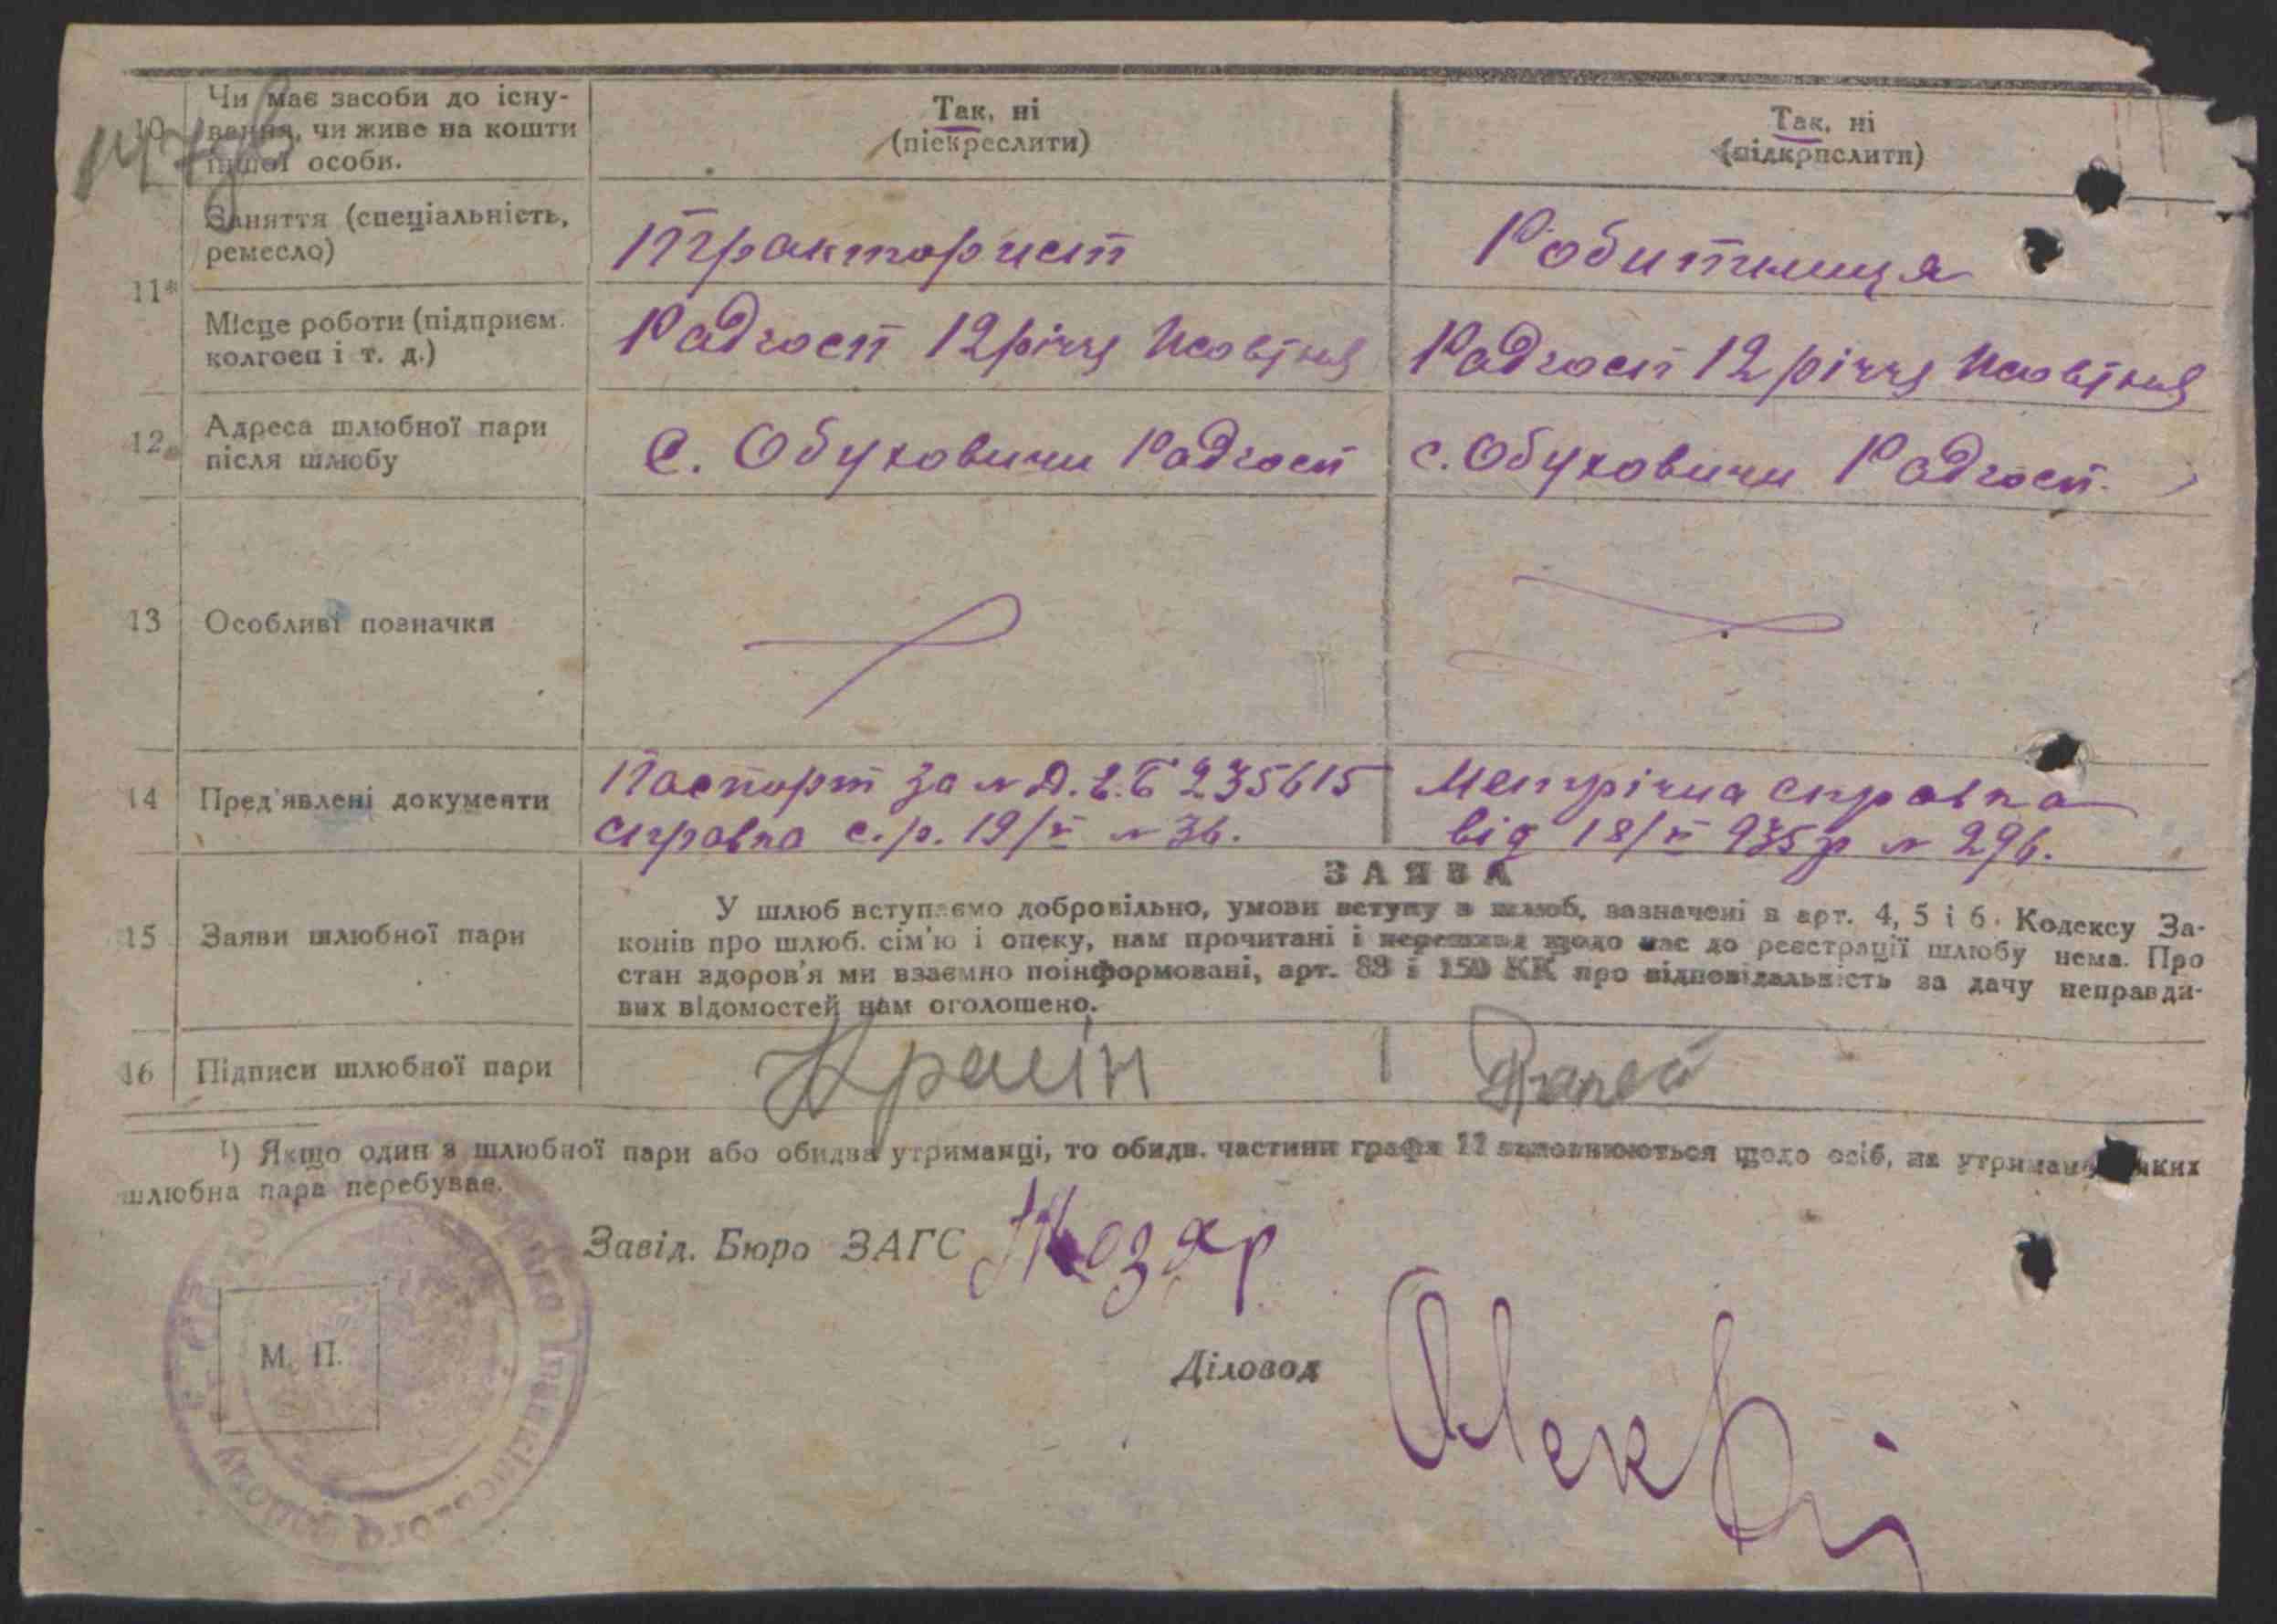 10 Чи має засоби до існу-
вання, чи живе на кошти
іншої особи.
Так, ні
(піскреслити)
Так, ні
(підкрпслити)
Заняття (спеціальність,
ремесло)
Тракторист
Робитниця
11*
Місце роботи (підприєм.
колгосп і т. д.)
Радгосп 12 річчя Жовтня
Радгосп 12 річчя Жовтня
12 Адреса шлюбної пари
після шлюбу
с. Обуховичи Радгосп
с. Обуховичи Радгосп.
13 Особливі позначки
14 Пред'явлені документи
Паспорт за № 235615
справка с.р. 19/ № 36.
Метрічна справка
від 18/ 935 р № 296.
ЗАЯВА
15 Заяви шлюбної пари
У шлюб вступаємо добровільно, умови вступу в шлюб, зазначені в арт. 4, 5 і 6. Кодексу За-
конів про шлюб. сім'ю і опеку, нам прочитані і перешкод щодо нас до реєстрації шлюбу нема. Про
стан здоров'я ми взаємно поінформовані, арт. 88 і 150 КК про відповідальність за дачу неправди-
вих відомостей нам оголошено.
16 Підписи шлюбної пари
¹) Якщо один з шлюбної пари або обидва утриманці, то обидв. частини графи 11 заповнюються щодо осіб, на утриман яких
шлюбна пара перебуває.
Завід. Бюро ЗАГС
М. П.
Діловод